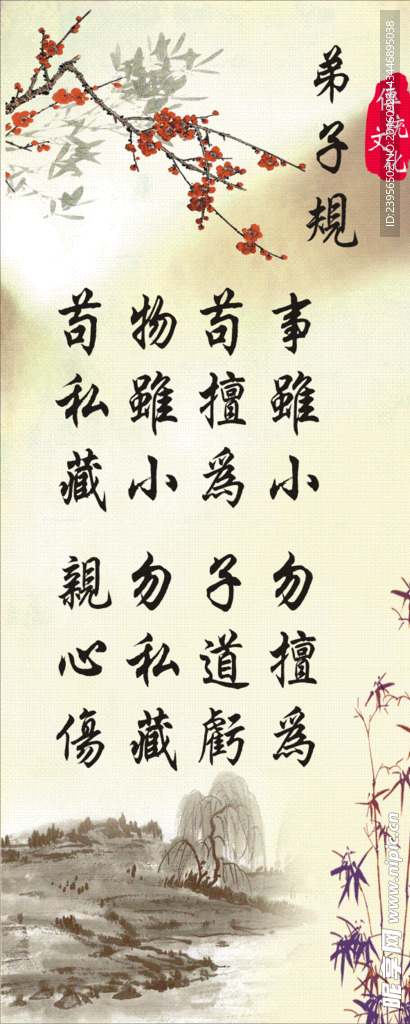 弟子規
传统文化
事雖小 勿擅爲
苟擅爲 子道虧
物雖小 勿私藏
苟私藏 親心傷
昵享网 www.nipic.cn